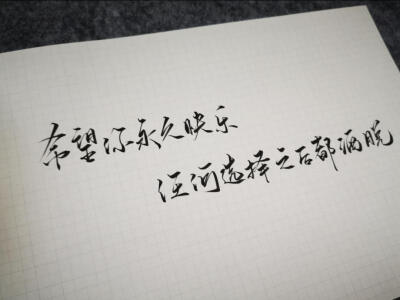 希望你永久快乐
任何选择之后都洒脱